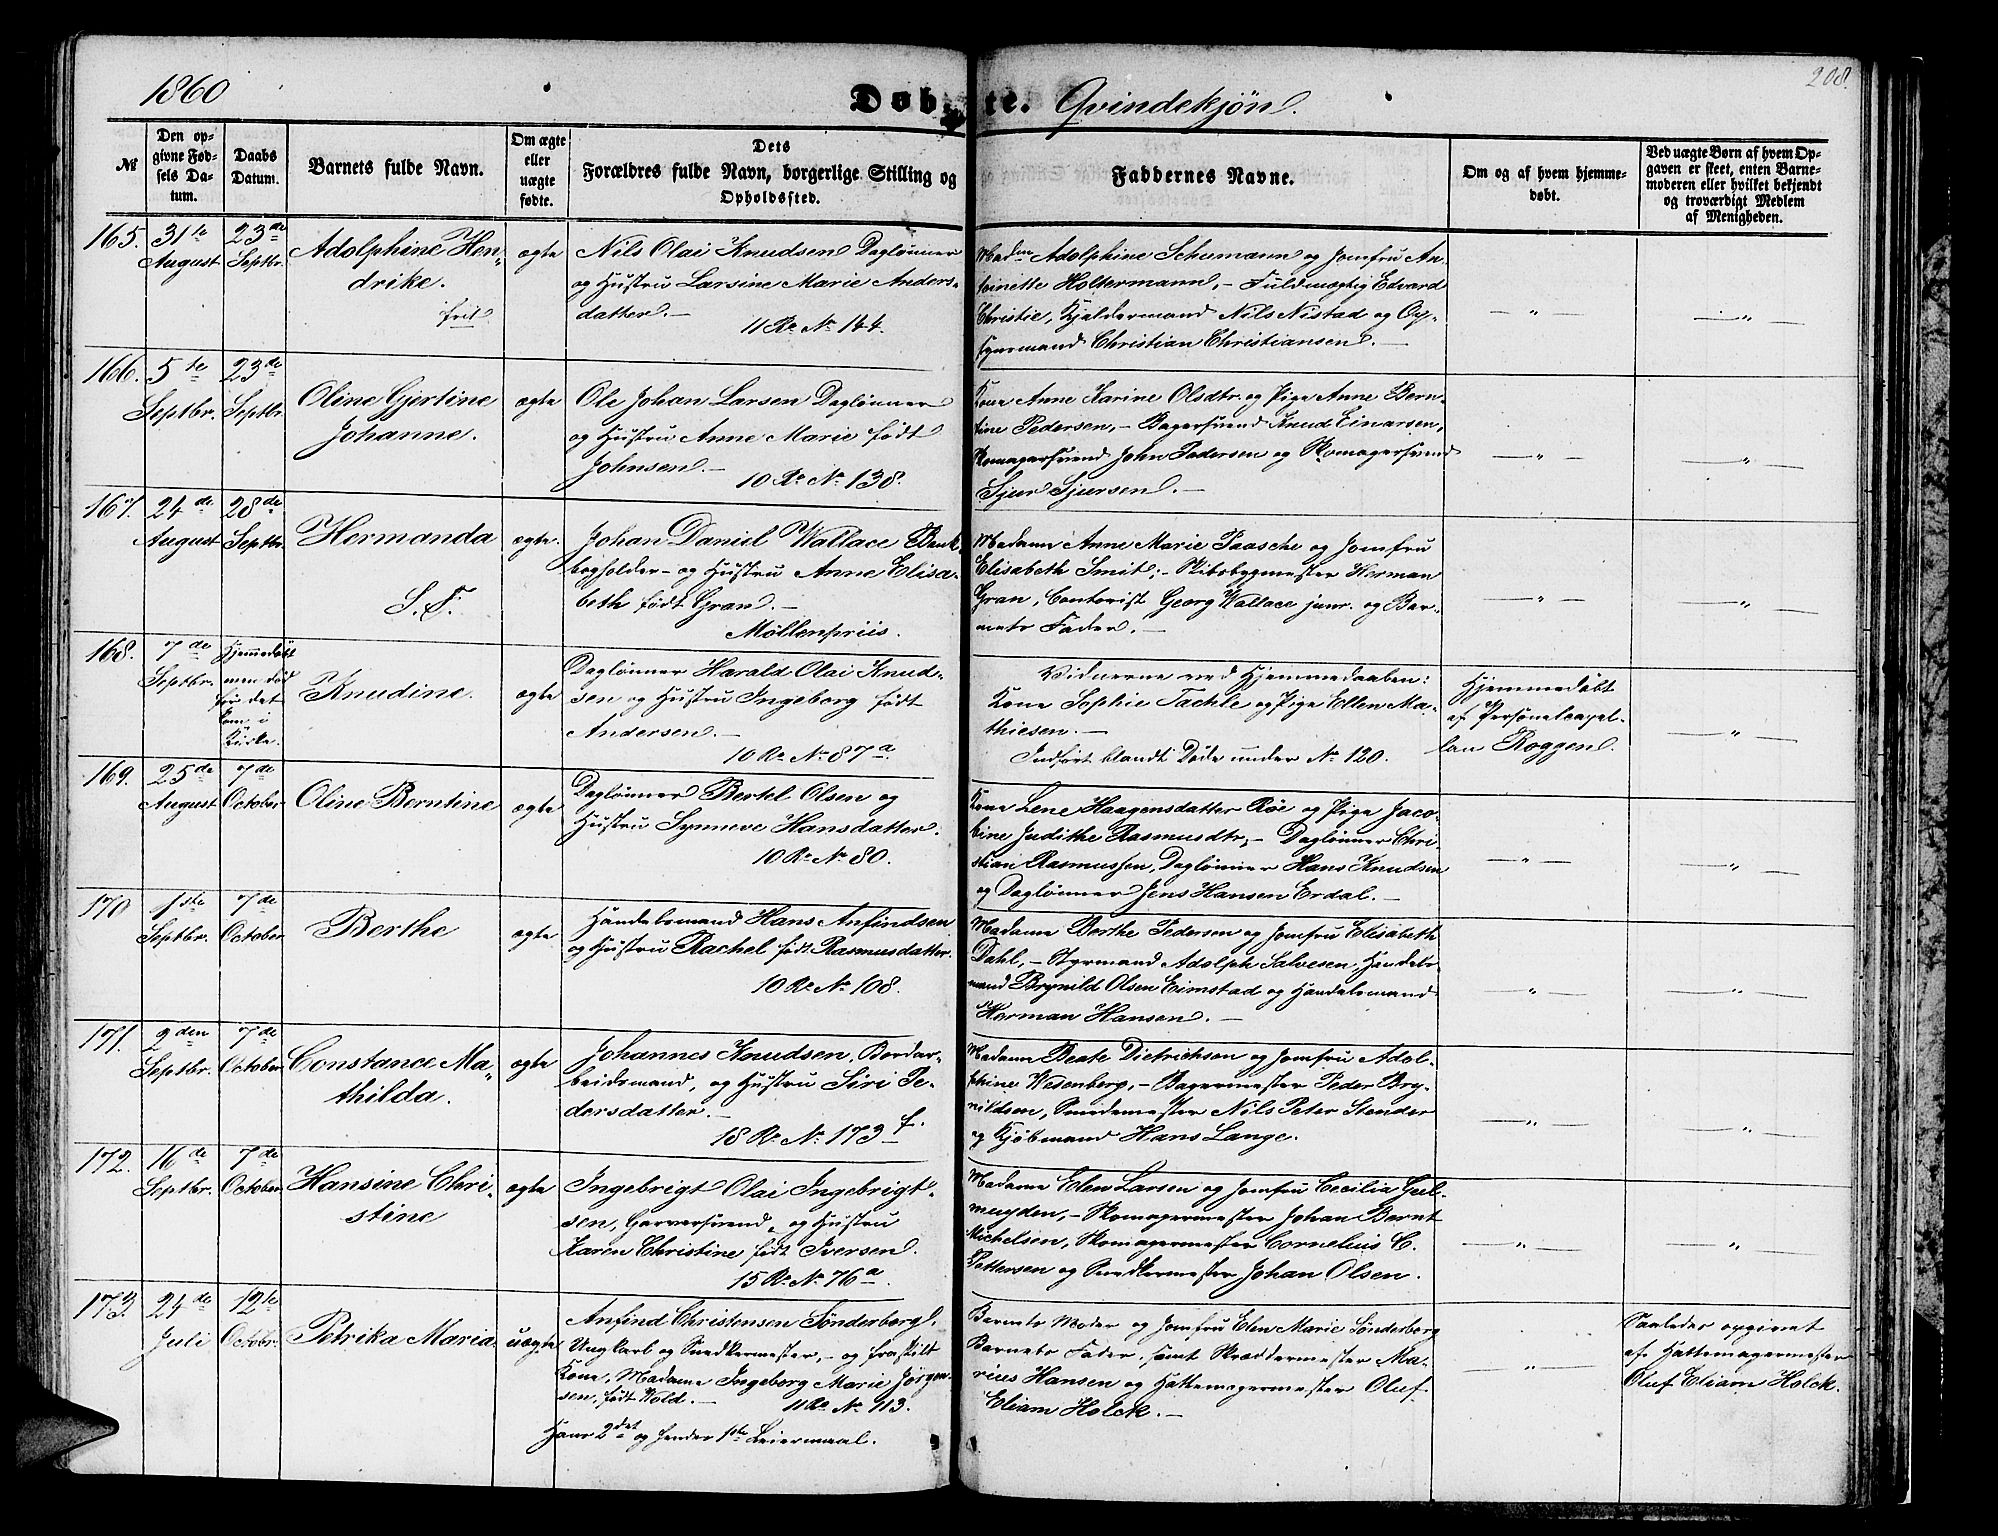 1860
Døbte. Qvindekjøn.
208.
№
Den opgivne Fødsels Datum.
Daabs Datum.
Barnets fulde Navn.
Om ægte eller uægte fødte.
Dets Forældres fulde Navn, borgerlige Stilling og Opholdssted.
Faddernes Navne.
Om og af hvem hjemmedøbt.
Ved uægte Børn af hvem Opgaven er skeet, enten Barnemoderen eller hvilket bekjendt og troværdigt Medlem af Menigheden.
165. 31te August 23de Septbr.
Adolphine Hen-
drike.
frit
ægte
Nils Olai Knudsen Daglønner
og Hustru Larsine Marie Anders-
datter.—
11 Ro. No. 144.
Madm Adolphine Schumann og Jomfru An-
toinette Holtermann,— Fuldmægtig Edvard
Christie, Kjeldermand Nils Nistad og Op-
synsmand Christian Christiansen.—
— „ —
— „ —
166. 5te Septbr. 23de Septbr.
Oline Gjertine
Johanne.
ægte
Ole Johan Larsen Daglønner
og Hustru Anne Marie født
Johnsen.—
10 Ro. No. 138.
Kone Anne Karine Olsdtr. og Pige Anne Bern-
tine Pedersen,— Bagersvend Knud Einarsen,
Skomagersvend John Pedersen og Skomagersvend
Sjur Sjursen.—
— „ —
— „ —
167. 24de August 28de Septbr.
Hermanda
S. F.
ægte.
Johan Daniel Wallace Bank-
bogholder— og Hustru Anne Elisa-
beth født Gran.—
Møllenpriis.
Madame Anne Marie Paasche og Jomfru
Elisabeth Smit;— Skibsbygmester Herman
Gran, Contorist Georg Wallace junr. og Bar-
nets Fader.—
— „ —
— „ —
168. 7de Septbr.
Hjemmedøbt
men død
før det
kom i
Kirke.
Knudine.
ægte
Daglønner Harald Olai Knud-
sen og Hustru Ingeborg født
Andersen.—
10 Ro. No. 87a.
Vidnerne ved Hjemmedaaben:
Kone Sophie Tachle og Pige Ellen Ma-
thiesen.—
Indført blandt Døde under No. 120.
Hjemmedøbt
af Personelcapel-
lan Roggen.
— „ —
169. 25de August 7de October
Oline Berntine
ægte
Daglønner Bertel Olsen og
Hustru Synneve Hansdatter.
10 Ro. No. 80.
Kone Lene Haagensdatter Røe og Pige Jaco-
bine Judithe Rasmusdtr,— Daglønner Chri-
stian Rasmussen, Daglønner Hans Knudsen
og Daglønner Jens Hansen Erdal.—
— „ —
— „ —
170 1ste Septbr. 7de October
Berthe
ægte
Handelsmand Hans Anfindsen
og Hustru Rachel født Rasmusdatter.
10 Ro. No. 108.
Madame Berthe Pedersen og Jomfru Elisabeth
Dahl,— Styrmand Adolph Salvesen, Handels-
mand Brynild Olsen Eimstad og Handelsmand
Herman Hansen.—
— „ —
— „ —
171. 2den Septbr. 7de October
Constance Ma-
thilda.
ægte
Johannes Knudsen, Bordar-
beidsmand, og Hustru Siri Pe-
dersdatter.—
18 Ro. No. 173 f.
Madame Beate Dietrichson og Jomfru Adol-
phine Wesenberg,— Bagermester Peder Bry-
nildsen, Smedemester Nils Peter Stender
og Kjøbmand Hans Lange.
— „ —
— „ —
172. 16de Septbr. 7de October
Hansine Chri-
stine
ægte
Ingebrigt Olai Ingebrigt-
sen, Garversvend, og Hustru
Karen Christine født Iversen.
15 Ro. No. 76a
Madame Elen Larsen og Jomfru Cecilia Gul-
meyden,— Skomagermester Johan Bernt
Michelsen, Skomagermester Cornelius C.
Pettersen og Snedkermester Johan Olsen.
— „ —
— „ —
173. 24de Juli 12te Octobr.
Petrika Maria.
uægte
Anfind Christensen Sønderborg,
Ungkarl og Snedkermester,— og fraskilt
Kone, Madame Ingeborg Marie Jørgen-
sen, født Wold.—
11 Ro. No. 913.
Hans 2det og hendes 1ste Leiermaal.
Barnets Moder og Jomfru Elen Marie Sønderborg
Barnets Fader, samt Skræddermester Ma-
rius Hansen og Hattemagermester Oluf
Eliam Holck.—
— „ —
Saaledes opgivet
af Hattemagermester
Oluf Eliam Holck.